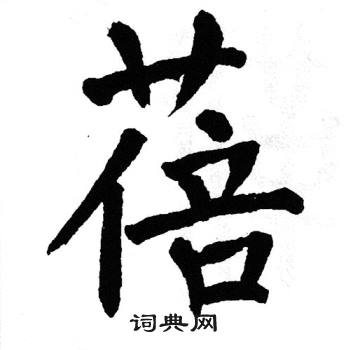 蓓
词典网